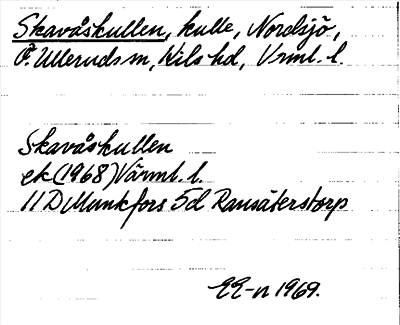 Skavåskullen, kulle, Nordsjö,
Ö. Ulleruds sn, Kils hd, Vrml. l.
Skavåskullen
ek (1968) Värml. l.
11D Munkfors 5d Ransäterstorp
EE-n 1969.